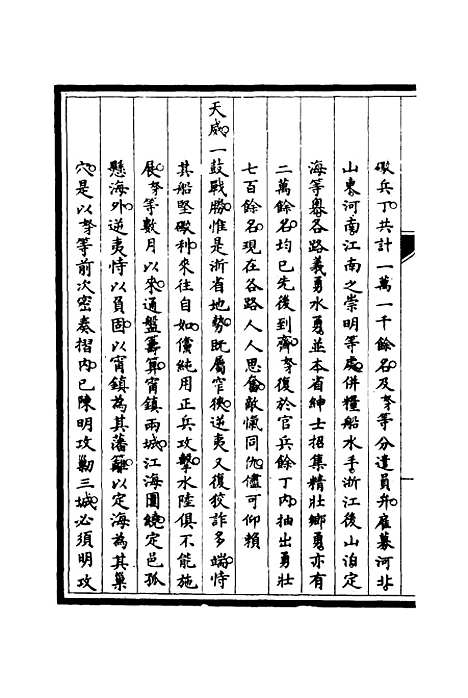 礮兵丁共計一萬一千餘名及奴等分遣員弁雇募河北
山東河南江南之崇明等處併糧船水手浙江後山泊定
海等嶴各路義勇水勇並本省紳士招集精壯鄉勇亦有
二萬餘名均已先後到齊奴復於官兵餘丁內抽出勇壯
七百餘名現在各路人人思奮敵愾同仇儘可仰賴
天威一鼓戰勝惟是浙省地勢既屬窄狹逆夷又復狡詐多端恃
其船堅礮利來往自如儻純用正兵攻擊水陸俱不能施
展奴等數月以來通盤籌算甯鎮兩城江海圍繞定邑孤
懸海外逆夷恃以負固以甯鎮為其藩籬以定海為其巢
穴是以奴等前次密奏摺內已陳明攻勦三城必須明攻